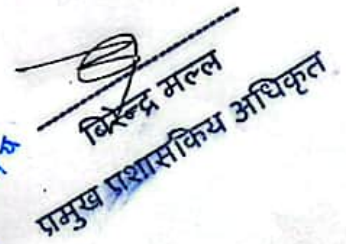 विरेन्द्र मल्ल
प्रमुख प्रशासकिय अधिकृत